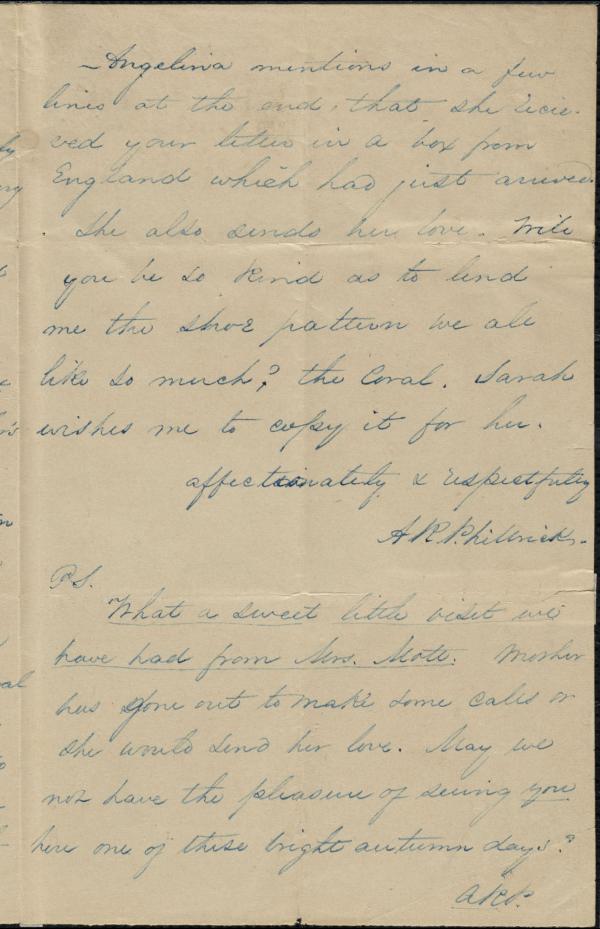 Angelina mentions in a few
lines at the end, that she recie-
ved your letter in a box from
England which had just arrived.
She also sends her love. Will
you be so kind as to lend
me the shoe pattern we all
like so much? the Coral. Sarah
wishes me to copy it for her.
affectionately & respectfully
A R Philbrick.
P.S.
What a sweet little visit we
have had from Mrs. Mott. Mother
has gone out to make some calls or
she would send her love. May we
not have the pleasure of seeing you
here one of these bright autumn days?
ARP.